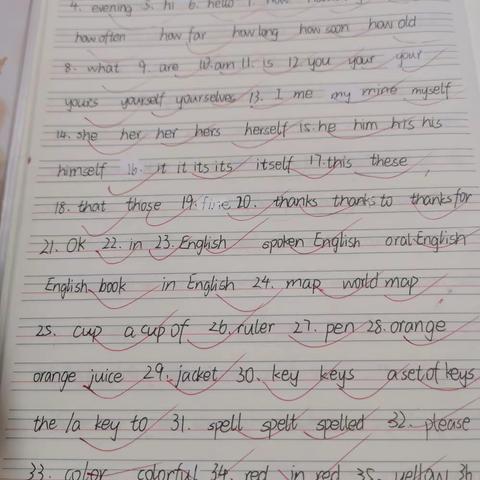 4. evening 5. hi 6. hello 7. how
how often how far how long how soon how old
8. what 9. are 10. am 11. is 12. you your your
yours yourself yourselves 13. I me my mine myself
14. she her her hers herself 15. he him his his
himself 16. it it its its itself 17. this these
18. that those 19. fine 20. thanks thanks to thanks for
21. Ok 22. in 23. English spoken English oral English
English book in English 24. map world map
25. cup a cup of 26. ruler 27. pen 28. orange
orange juice 29. jacket 30. key keys a set of keys
the/a key to 31. spell spelt spelled 32. please
33. color colorful 34. red in red 35. yellow 36